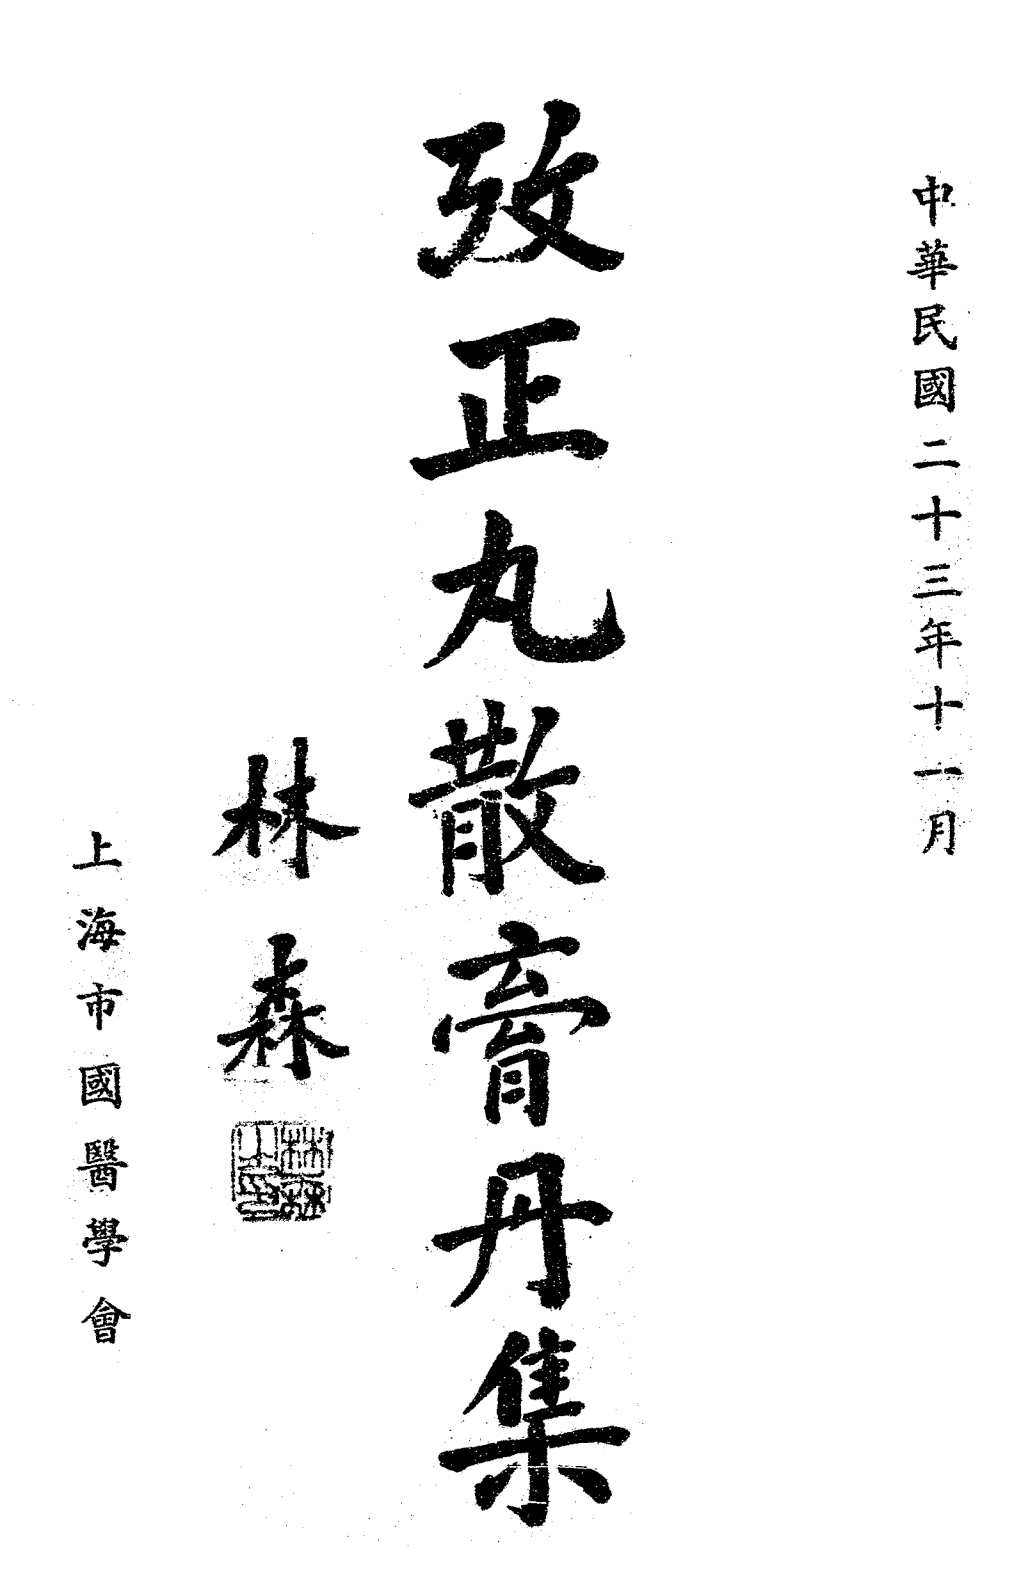 中華民國二十三年十一月
攷正丸散膏丹集
林森
林森之印
上海市國醫學會